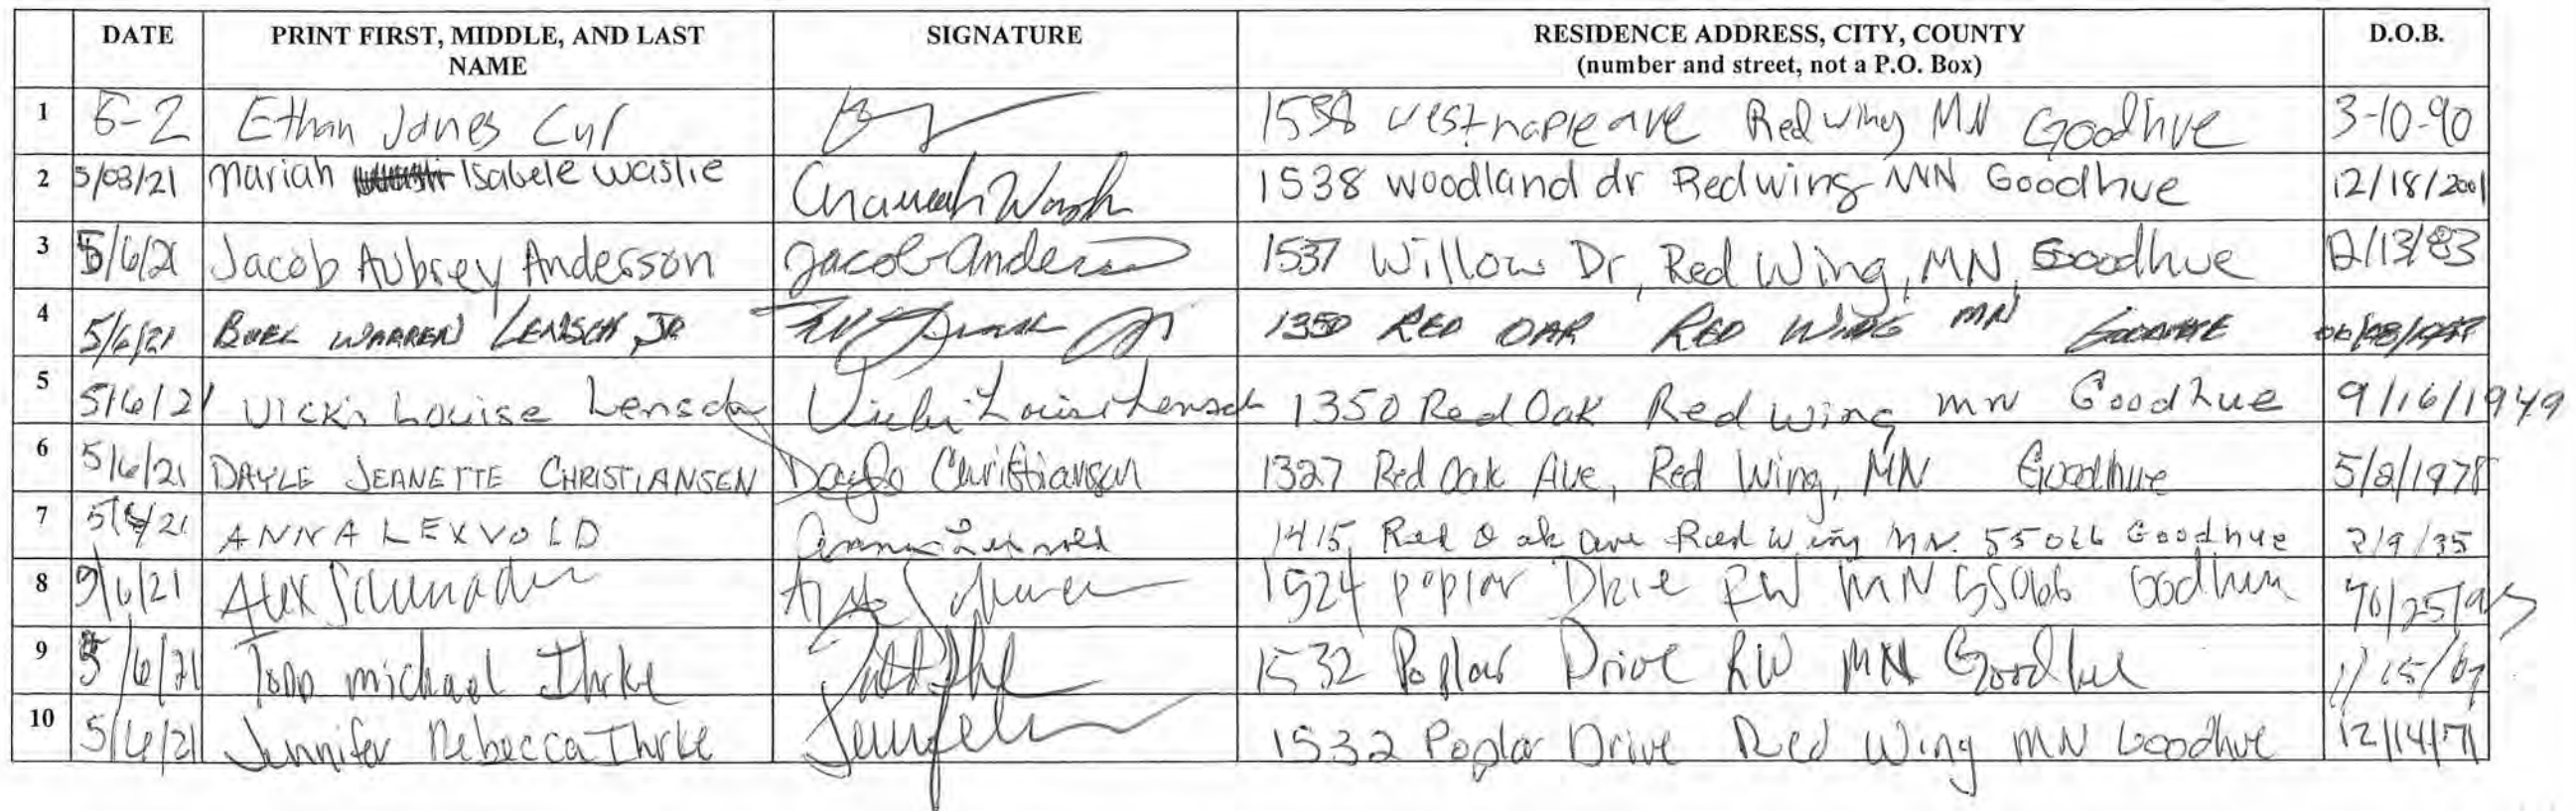 DATE PRINT FIRST, MIDDLE, AND LAST NAME SIGNATURE RESIDENCE ADDRESS, CITY, COUNTY (number and street, not a P.O. Box) D.O.B.
1 5-2 Ethan James Cyr 1538 west maple ave Red wing MN Goodhue 3-10-90
2 5/03/21 Mariah Isabele Waslie 1538 woodland dr Redwing MN Goodhue 12/18/2001
3 5/6/21 Jacob Aubrey Anderson Jacob Anderson 1537 Willow Dr, Red Wing, MN, Goodhue 12/13/83
4 5/6/21 WARREN LENSCH JR 1350 RED OAK RED WING MN GOODHUE
5 5/6/21 Vicki Louise Lensch Vicki Louise Lensch 1350 Red Oak Red Wing mn Goodhue 9/16/1949
6 5/6/21 DAYLE JEANETTE CHRISTIANSEN Dayle Christiansen 1327 Red Oak Ave, Red Wing, MN Goodhue 5/2/1978
7 ANNA LEXVOLD Anna Lexvold 1415 Red Oak ave Red Wing MN. 55066 Goodhue 2/9/35
8 5/6/21 Alex 1524 Poplar RW MN 55066 Goodhue
9 5/6/21 Todd michael Ihrke 1532 Poplar Drive RW MN Goodhue
10 5/6/21 Jennifer Rebecca Ihrke 1532 Poplar Drive Red Wing MN Goodhue 12/14/71